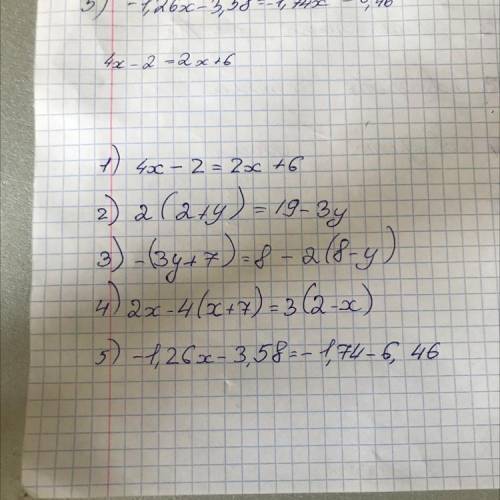 5) -1,26x-3,58=-1,74x - 6,46
4x-2=2x+6
1) 4x-2=2x+6
2) 2(2+y)=19-3y
3) -(3y+7)=8-2(8-y)
4) 2x-4(x+7)=3(2-x)
5) -1,26x-3,58=-1,74-6,46